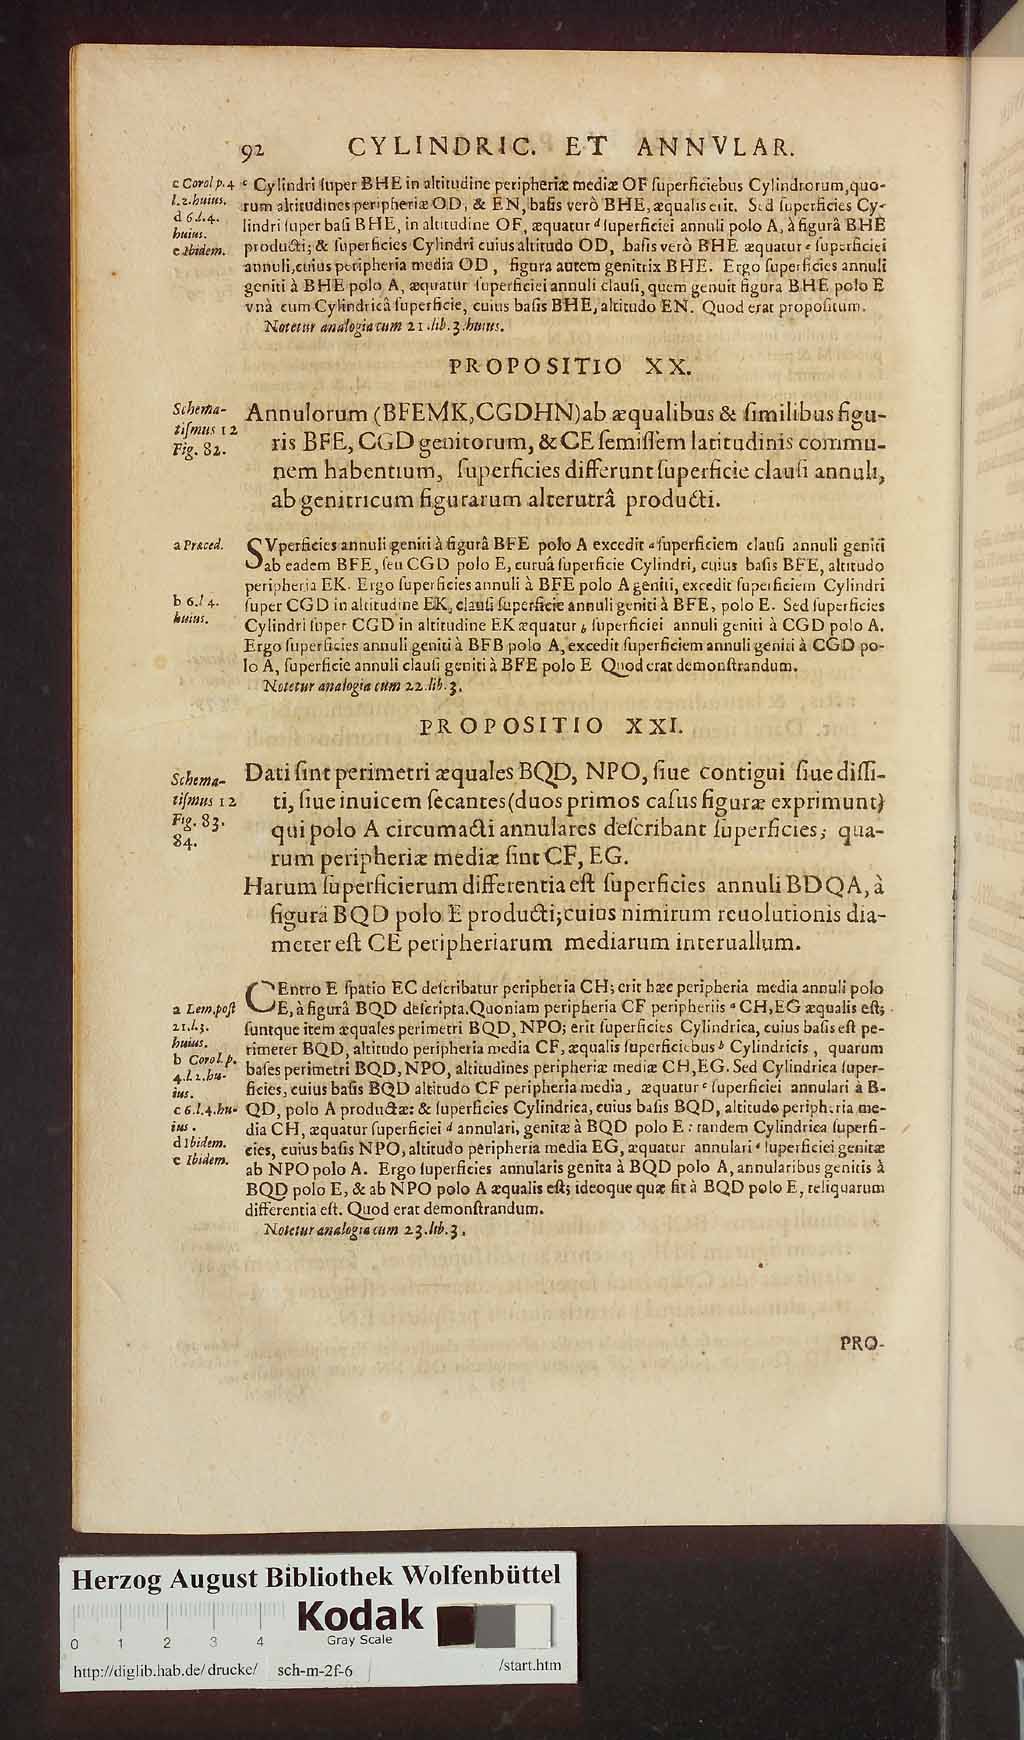 92 CYLINDRIC. ET ANNVLAR.
c Corol p. 4
l. 2. huius.
d 6. l. 4.
huius.
e Ibidem.
c Cylindri ſuper BHE in altitudine peripheriæ mediæ OF ſuperficiebus Cylindrorum, quo-
rum altitudines peripheriæ OD, & EN, baſis verò BHE, æqualis erit. Sed ſuperficies Cy-
lindri ſuper baſi BHE, in altitudine OF, æquatur d ſuperficiei annuli polo A, à figurâ BHE
producti; & ſuperficies Cylindri cuius altitudo OD, baſis verò BHE æquatur e ſuperficiei
annuli, cuius peripheria media OD, figura autem genitrix BHE. Ergo ſuperficies annuli
geniti à BHE polo A, æquatur ſuperficiei annuli clauſi, quem genuit figura BHE polo E
vnà cum Cylindricâ ſuperficie, cuius baſis BHE, altitudo EN. Quod erat propoſitum.
Notetur analogia cum 21. lib. 3. huius.
PROPOSITIO XX.
Schema-
tiſmus 12
Fig. 82.
Annulorum (BFEMK, CGDHN) ab æqualibus & ſimilibus figu-
ris BFE, CGD genitorum, & CE ſemiſſem latitudinis commu-
nem habentium, ſuperficies differunt ſuperficie clauſi annuli,
ab genitricum figurarum alterutrâ producti.
a Præced.
SVperficies annuli geniti à figurâ BFE polo A excedit a ſuperficiem clauſi annuli geniti
ab eadem BFE, ſeu CGD polo E, curuâ ſuperficie Cylindri, cuius baſis BFE, altitudo
peripheria EK. Ergo ſuperficies annuli à BFE polo A geniti, excedit ſuperficiem Cylindri
b 6. l 4.
huius.
ſuper CGD in altitudine EK, clauſi ſuperficie annuli geniti à BFE, polo E. Sed ſuperficies
Cylindri ſuper CGD in altitudine EK æquatur b ſuperficiei annuli geniti à CGD polo A.
Ergo ſuperficies annuli geniti à BFB polo A, excedit ſuperficiem annuli geniti à CGD po-
lo A, ſuperficie annuli clauſi geniti à BFE polo E Quod erat demonſtrandum.
Notetur analogia cum 22. lib. 3.
PROPOSITIO XXI.
Schema-
tiſmus 12
Fig. 83.
84.
Dati ſint perimetri æquales BQD, NPO, ſiue contigui ſiue diſſi-
ti, ſiue inuicem ſecantes (duos primos caſus figuræ exprimunt)
qui polo A circumacti annulares deſcribant ſuperficies; qua-
rum peripheriæ mediæ ſint CF, EG.
Harum ſuperficierum differentia eſt ſuperficies annuli BDQA, à
figurâ BQD polo E producti; cuius nimirum reuolutionis dia-
meter eſt CE peripheriarum mediarum interuallum.
a Lem. poſt
21. l. 3.
huius.
b Corol. p.
4. l. 2. hu-
ius.
c 6. l. 4. hu-
ius.
d Ibidem.
e Ibidem.
CEntro E ſpatio EC deſcribatur peripheria CH; erit hæc peripheria media annuli polo
E, à figurâ BQD deſcripta. Quoniam peripheria CF peripheriis a CH, EG æqualis eſt;
ſuntque item æquales perimetri BQD, NPO; erit ſuperficies Cylindrica, cuius baſis eſt pe-
rimeter BQD, altitudo peripheria media CF, æqualis ſuperficiebus b Cylindricis, quarum
baſes perimetri BQD, NPO, altitudines peripheriæ mediæ CH, EG. Sed Cylindrica ſuper-
ficies, cuius baſis BQD altitudo CF peripheria media, æquatur c ſuperficiei annulari à B-
QD, polo A productæ: & ſuperficies Cylindrica, cuius baſis BQD, altitudo peripheria me-
dia CH, æquatur ſuperficiei d annulari, genitæ à BQD polo E: tandem Cylindrica ſuperfi-
cies, cuius baſis NPO, altitudo peripheria media EG, æquatur annulari e ſuperficiei genitæ
ab NPO polo A. Ergo ſuperficies annularis genita à BQD polo A, annularibus genitis à
BQD polo E, & ab NPO polo A æqualis eſt; ideoque quæ fit à BQD polo E, reliquarum
differentia eſt. Quod erat demonſtrandum.
Notetur analogia cum 23. lib. 3.
PRO-
Herzog August Bibliothek Wolfenbüttel
Kodak
Gray Scale
0 1 2 3 4
http://diglib.hab.de/drucke/ sch-m-2f-6 /start.htm